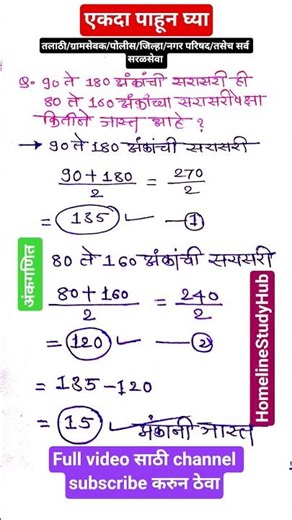 एकदा पाहून घ्या
तलाठी/ग्रामसेवक/पोलीस/जिल्हा/नगर परिषद/तसेच सर्व
सरळसेवा
Q. 90 ते 180 अंकांची सरासरी ही
80 ते 160 अंकांच्या सरासरीपेक्षा
कितीने जास्त आहे ?
→ 90 ते 180 अंकांची सरासरी
90+180/2 = 270/2
= 135 — ①
80 ते 160 अंकांची सरासरी
80+160/2 = 240/2
= 120 — ②
= 135-120
= 15 अंकानी जास्त
अंकगणित
HomelineStudyHub
Full video साठी channel
subscribe करुन ठेवा